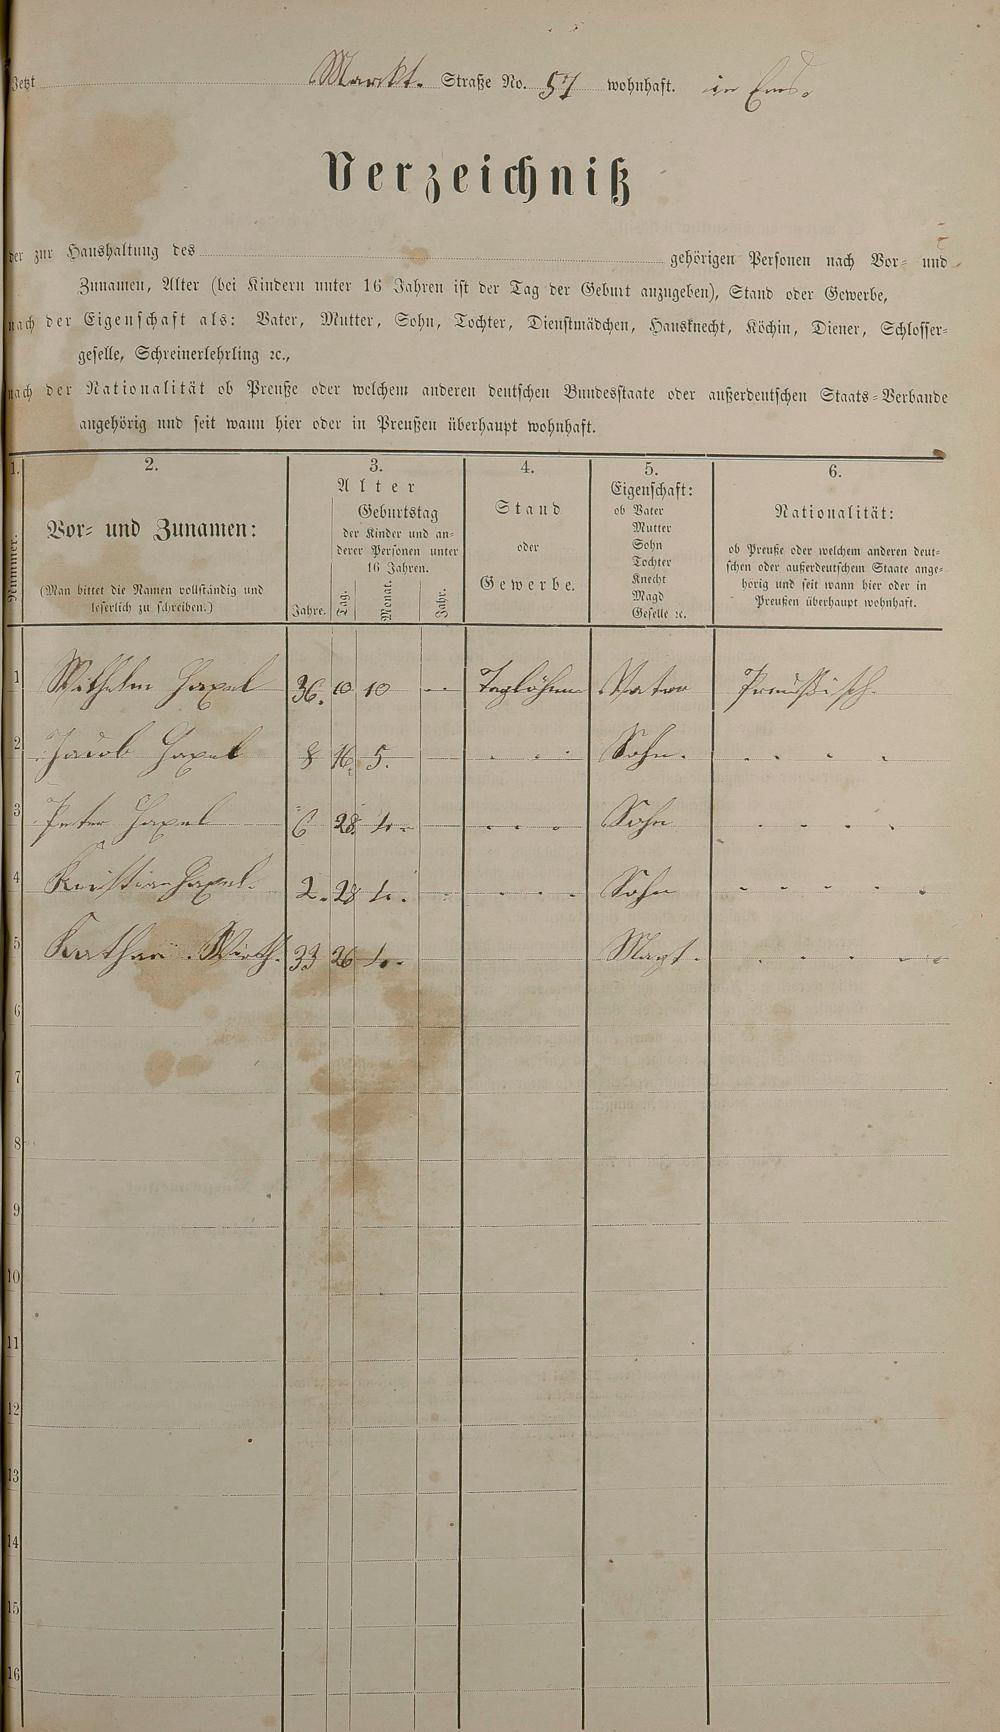 Jetzt Markt. Straße No. 57 wohnhaft. in Ems.
Verzeichniß
der zur Haushaltung des gehörigen Personen nach Vor- und
Zunamen, Alter (bei Kindern unter 16 Jahren ist der Tag der Geburt anzugeben), Stand oder Gewerbe,
nach der Eigenschaft als: Vater, Mutter, Sohn, Tochter, Dienstmädchen, Hausknecht, Köchin, Diener, Schlosser-
geselle, Schreinerlehrling ꝛc.,
nach der Nationalität ob Preuße oder welchem anderen deutschen Bundesstaate oder außerdeutschen Staats-Verbande
angehörig und seit wann hier oder in Preußen überhaupt wohnhaft.
1. 2. 3. 4. 5. 6.
Nummer.
Vor- und Zunamen:
(Man bittet die Namen vollständig und
leserlich zu schreiben.)
Alter
Jahre.
Geburtstag
der Kinder und an-
derer Personen unter
16 Jahren.
Tag. Monat. Jahr.
Stand
oder
Gewerbe.
Eigenschaft:
ob Vater
Mutter
Sohn
Tochter
Knecht
Magd
Geselle ꝛc.
Nationalität:
ob Preuße oder welchem anderen deut-
schen oder außerdeutschem Staate ange-
hörig und seit wann hier oder in
Preußen überhaupt wohnhaft.
1 Wilhelm Haxel 36. 10 10 -- Taglöhner Vater Preußisch.
2 Jacob Haxel 8 16. 5. - - - Sohn. - - - -
3 Peter Haxel 6 28. - - - Sohn - - - -
4 Kristian Haxel. 2. 28 - - - Sohn - - - -
5 Wirth. 33 26 Magt. - - - -
6
7
8
9
10
11
12
13
14
15
16